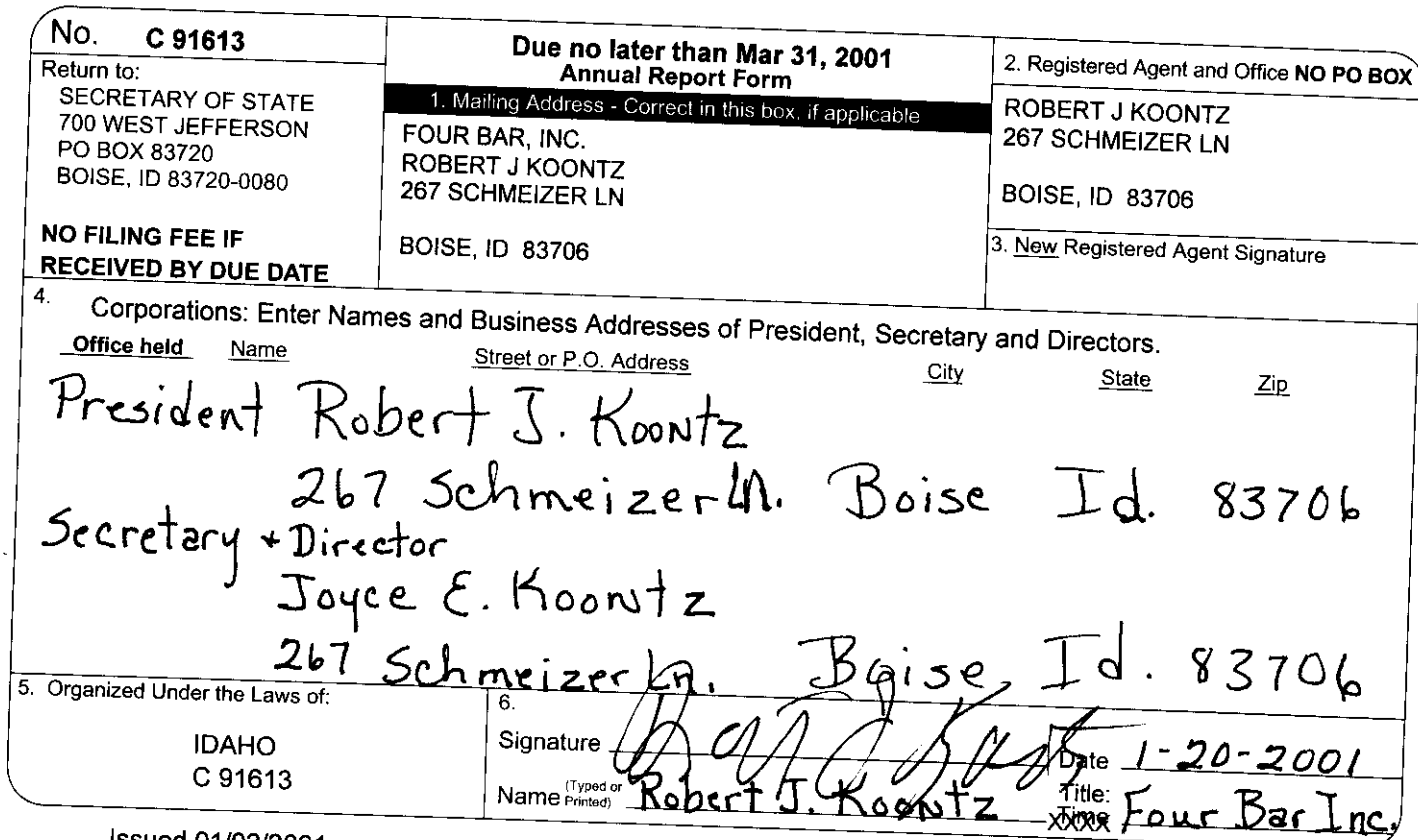 No. C 91613
Return to:
SECRETARY OF STATE
700 WEST JEFFERSON
PO BOX 83720
BOISE, ID 83720-0080
NO FILING FEE IF
RECEIVED BY DUE DATE
Due no later than Mar 31, 2001
Annual Report Form
1. Mailing Address - Correct in this box, if applicable
FOUR BAR, INC.
ROBERT J KOONTZ
267 SCHMEIZER LN
BOISE, ID 83706
2. Registered Agent and Office NO PO BOX
ROBERT J KOONTZ
267 SCHMEIZER LN
BOISE, ID 83706
3. New Registered Agent Signature
4. Corporations: Enter Names and Business Addresses of President, Secretary and Directors.
Office held Name Street or P.O. Address City State Zip
President Robert J. Koontz
267 Schmeizer Ln. Boise Id. 83706
Secretary + Director
Joyce E. Koontz
267 Schmeizer Ln. Boise, Id. 83706
5. Organized Under the Laws of:
IDAHO
C 91613
6.
Signature
Date 1-20-2001
Name (Typed or Printed) Robert J. Koontz
Title: Four Bar Inc.
Issued 01/02/2001